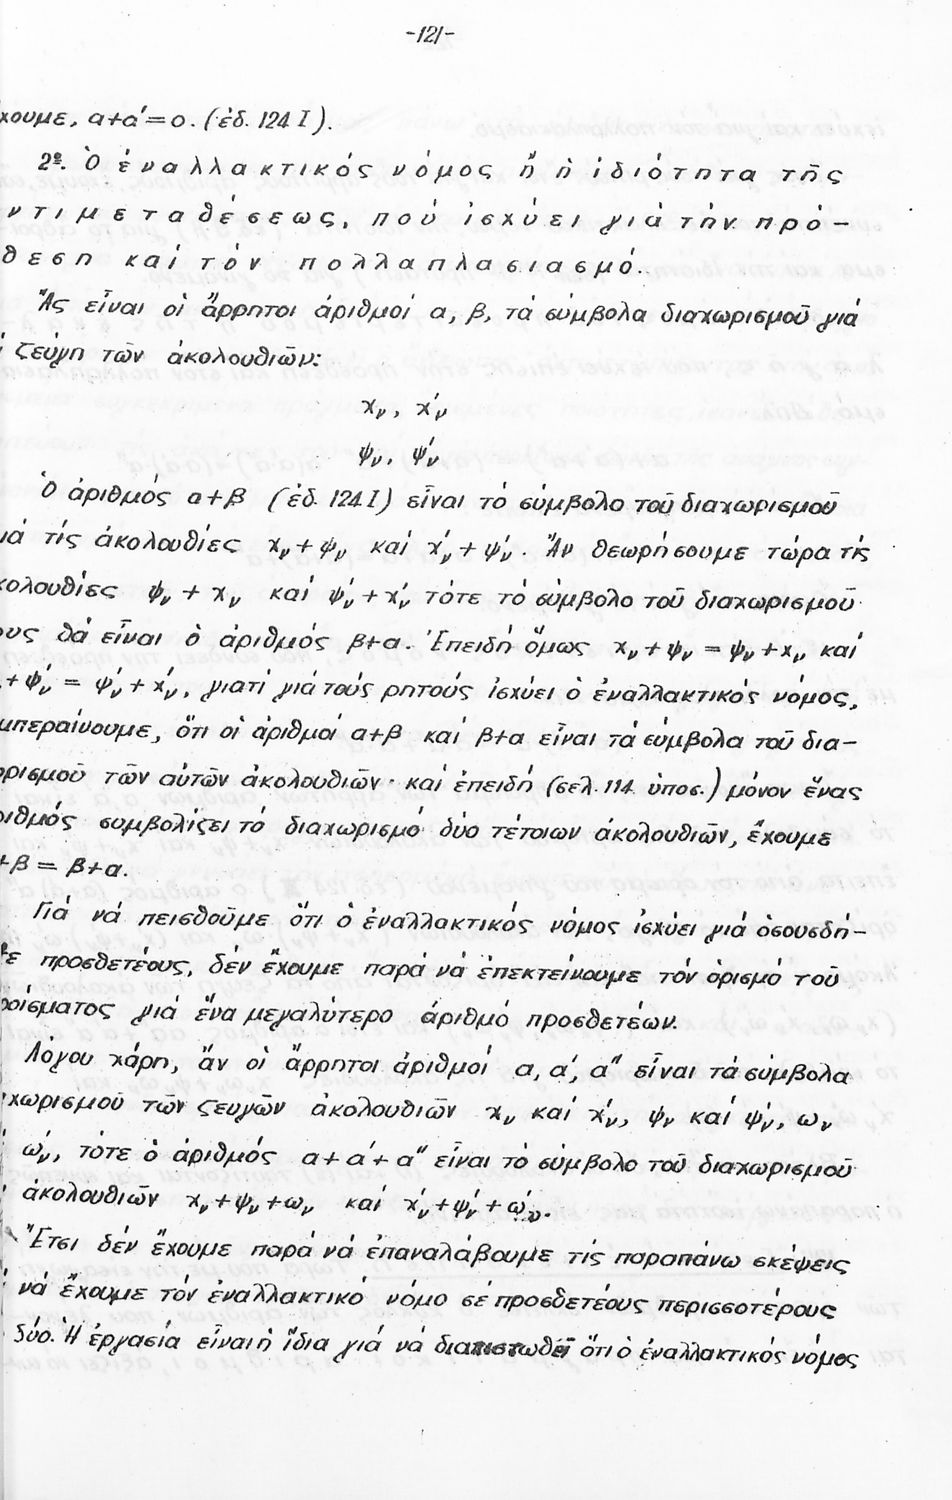 -121-
χουμε, α+α΄=0. (ἐδ. 124 I).
2º. Ὁ ἐναλλακτικός νόμος ἤ ἡ ἰδιότητα τῆς
ντιμεταθέσεως, πού ἰσχύει γιά τήν πρό-
θεση καί τόν πολλαπλασιασμό.
Ἄς εἶναι οἱ ἄρρητοι ἀριθμοί α, β, τά σύμβολα διαχωρισμοῦ γιά
ζεύγη τῶν ἀκολουθιῶν:
χν, χ΄ν
ψν, ψ΄ν
Ὁ ἀριθμός α+β (ἐδ. 124.I) εἶναι τό σύμβολο τοῦ διαχωρισμοῦ
ιά τίς ἀκολουθίες χν+ψν καί χ΄ν+ψ΄ν. Ἄν θεωρήσουμε τώρα τίς
κολουθίες ψν+χν καί ψ΄ν+χ΄ν τότε τό σύμβολο τοῦ διαχωρισμοῦ
ους θά εἶναι ὁ ἀριθμός β+α. Ἐπειδή ὅμως χν+ψν = ψν+χν καί
+ψ΄ν = ψν+χν, γιατί γιά τούς ρητούς ἰσχύει ὁ ἐναλλακτικός νόμος,
μπεραίνουμε, ὅτι οἱ ἀριθμοί α+β καί β+α εἶναι τά σύμβολα τοῦ δια-
ρισμοῦ τῶν αὐτῶν ἀκολουθιῶν· καί ἐπειδή (σελ. 114. ὑποσ.) μόνον ἕνας
ριθμός συμβολίζει τό διαχωρισμό δύο τέτοιων ἀκολουθιῶν, ἔχουμε
+β = β+α.
Γιά νά πεισθοῦμε ὅτι ὁ ἐναλλακτικός νόμος ἰσχύει γιά ὁσουσδή-
ε προσθετέους, δέν ἔχουμε παρά νά ἐπεκτείνουμε τόν ὁρισμό τοῦ
ροίσματος γιά ἕνα μεγαλύτερο ἀριθμό προσθετέων.
Λόγου χάρη, ἄν οἱ ἄρρητοι ἀριθμοί α, α΄, α΄΄ εἶναι τά σύμβολα
χωρισμοῦ τῶν ζευγῶν ἀκολουθιῶν χν καί χ΄ν, ψν καί ψ΄ν, ων
ω΄ν, τότε ὁ ἀριθμός α+α΄+α΄΄ εἶναι τό σύμβολο τοῦ διαχωρισμοῦ
ἀκολουθιῶν χν+ψν+ων καί χ΄ν+ψ΄ν+ω΄ν.
Ἔτσι δέν ἔχουμε παρά νά ἐπαναλάβουμε τίς παραπάνω σκέψεις
νά ἔχουμε τόν ἐναλλακτικό νόμο σε προσθετέους περισσοτέρους
δύο. Ἡ ἐργασία εἶναι ἡ ἴδια γιά νά διαπιστωθεῖ ὅτι ὁ ἐναλλακτικός νόμος